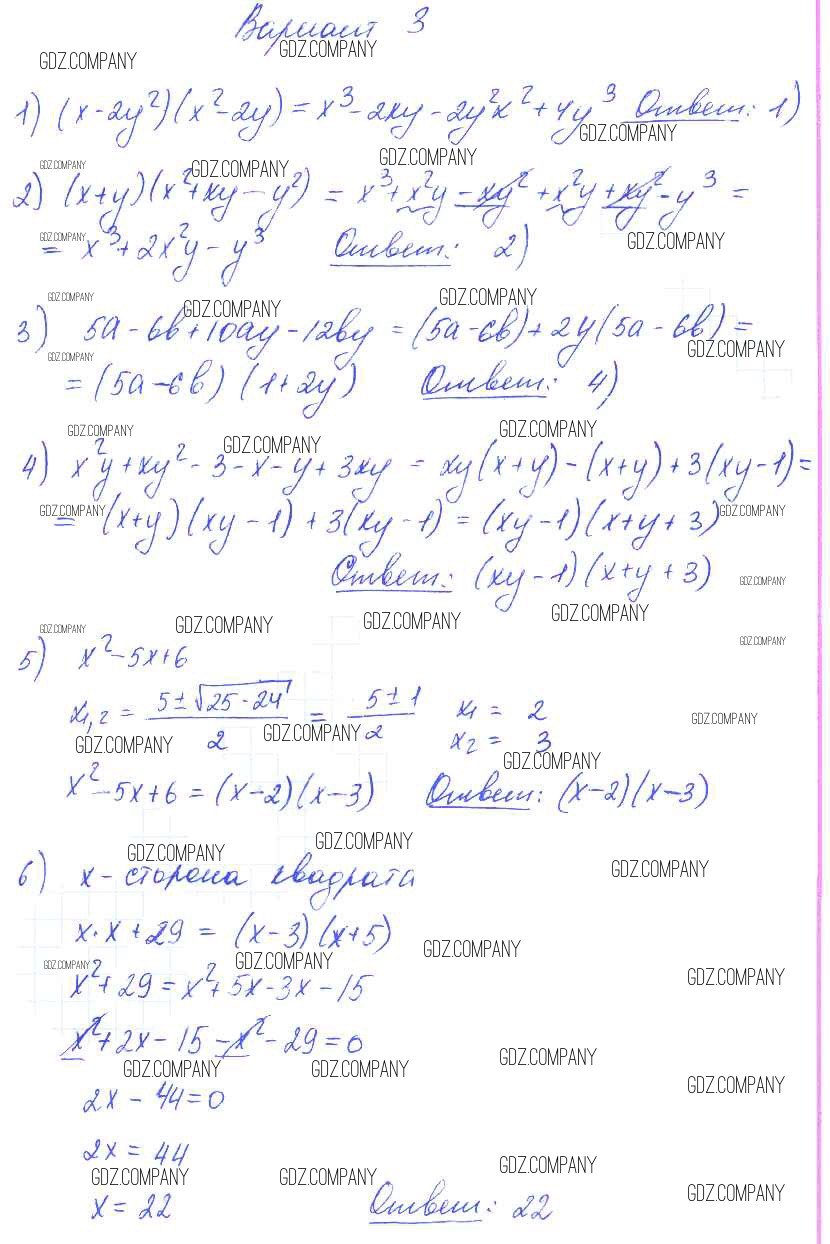 Вариант 3
GDZ.COMPANY GDZ.COMPANY
1) (x-2y²)(x²-2y) = x³-2xy-2y²x²+4y³ Ответ: 1)
GDZ.COMPANY
GDZ.COMPANY GDZ.COMPANY GDZ.COMPANY
2) (x+y)(x²+xy-y²) = x³+x²y-xy²+x²y+xy²-y³ =
GDZ.COMPANY GDZ.COMPANY
= x³+2x²y-y³ Ответ: 2)
GDZ.COMPANY GDZ.COMPANY GDZ.COMPANY
3) 5a-6b+10ay-12by = (5a-6b)+2y(5a-6b) =
GDZ.COMPANY GDZ.COMPANY
= (5a-6b)(1+2y) Ответ: 4)
GDZ.COMPANY GDZ.COMPANY GDZ.COMPANY
4) x²y+xy²-3-x-y+3xy = xy(x+y)-(x+y)+3(xy-1) =
GDZ.COMPANY GDZ.COMPANY
= (x+y)(xy-1)+3(xy-1) = (xy-1)(x+y+3)
Ответ: (xy-1)(x+y+3) GDZ.COMPANY
GDZ.COMPANY GDZ.COMPANY GDZ.COMPANY GDZ.COMPANY
GDZ.COMPANY
5) x²-5x+6
x₁,₂ = (5±√25-24)/2 = (5±1)/2 x₁ = 2
GDZ.COMPANY GDZ.COMPANY GDZ.COMPANY
x₂ = 3
GDZ.COMPANY
x²-5x+6 = (x-2)(x-3) Ответ: (x-2)(x-3)
GDZ.COMPANY GDZ.COMPANY GDZ.COMPANY
6) x - сторона квадрата
x·x+29 = (x-3)(x+5)
GDZ.COMPANY GDZ.COMPANY GDZ.COMPANY GDZ.COMPANY
x²+29 = x²+5x-3x-15
x²+2x-15-x²-29=0
GDZ.COMPANY GDZ.COMPANY GDZ.COMPANY GDZ.COMPANY
2x-44=0
2x = 44
GDZ.COMPANY GDZ.COMPANY GDZ.COMPANY GDZ.COMPANY
x = 22 Ответ: 22